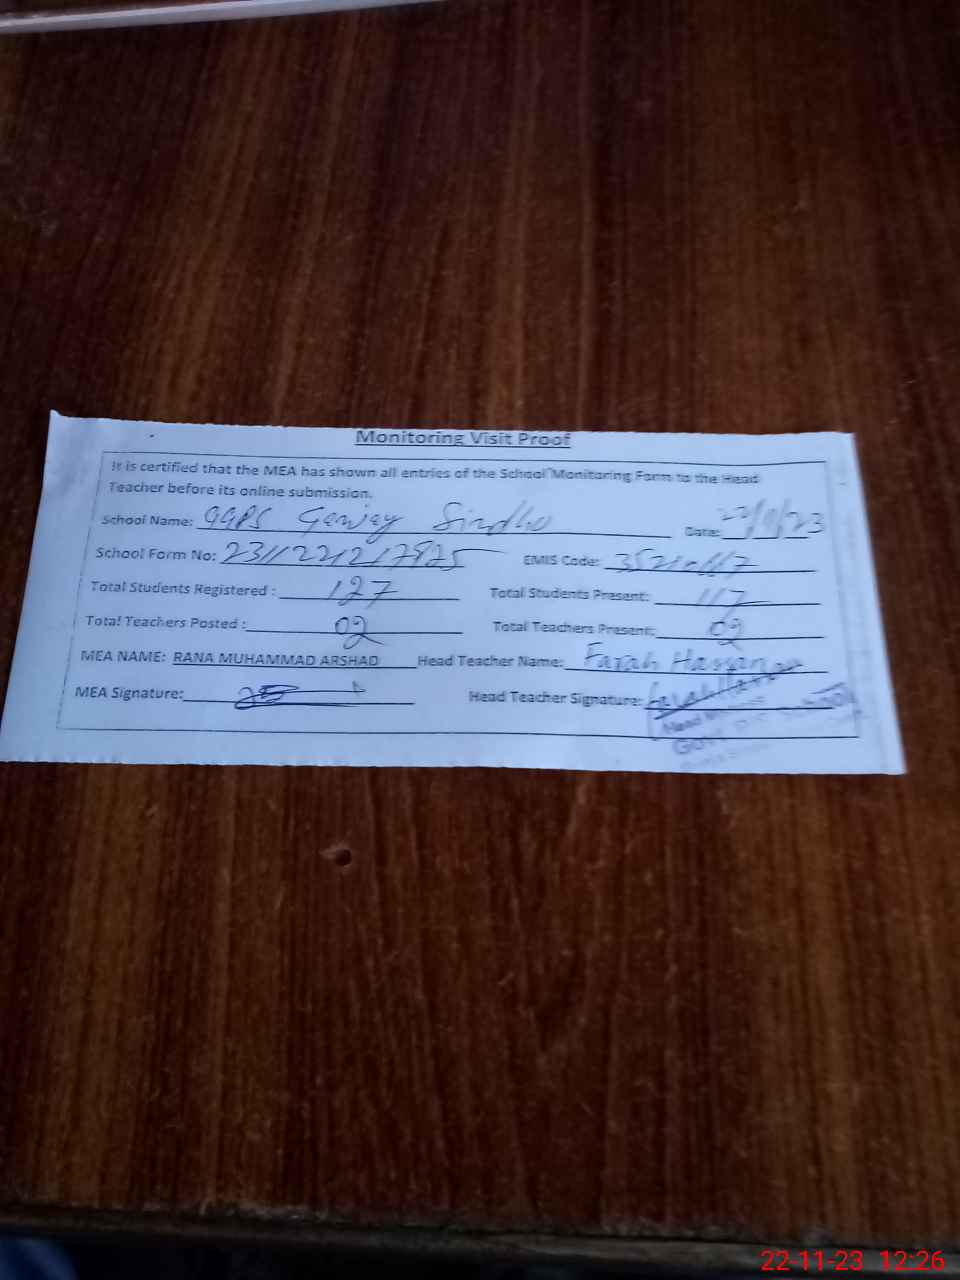 Monitoring Visit Proof
It is certified that the MEA has shown all entries of the School Monitoring Form to the Head
Teacher before its online submission.
School Name: GGPS Ganjay Sindho Date: 22/11/23
School Form No: EMIS Code:
Total Students Registered : 127 Total Students Present: 117
Total Teachers Posted : 02 Total Teachers Present: 02
MEA NAME: RANA MUHAMMAD ARSHAD Head Teacher Name: Farah
MEA Signature: Head Teacher Signature:
Head
22-11-23 12:26